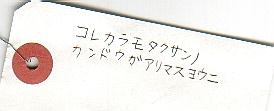 コレカラモタクサンノ
カンドウガアリマスヨウニ